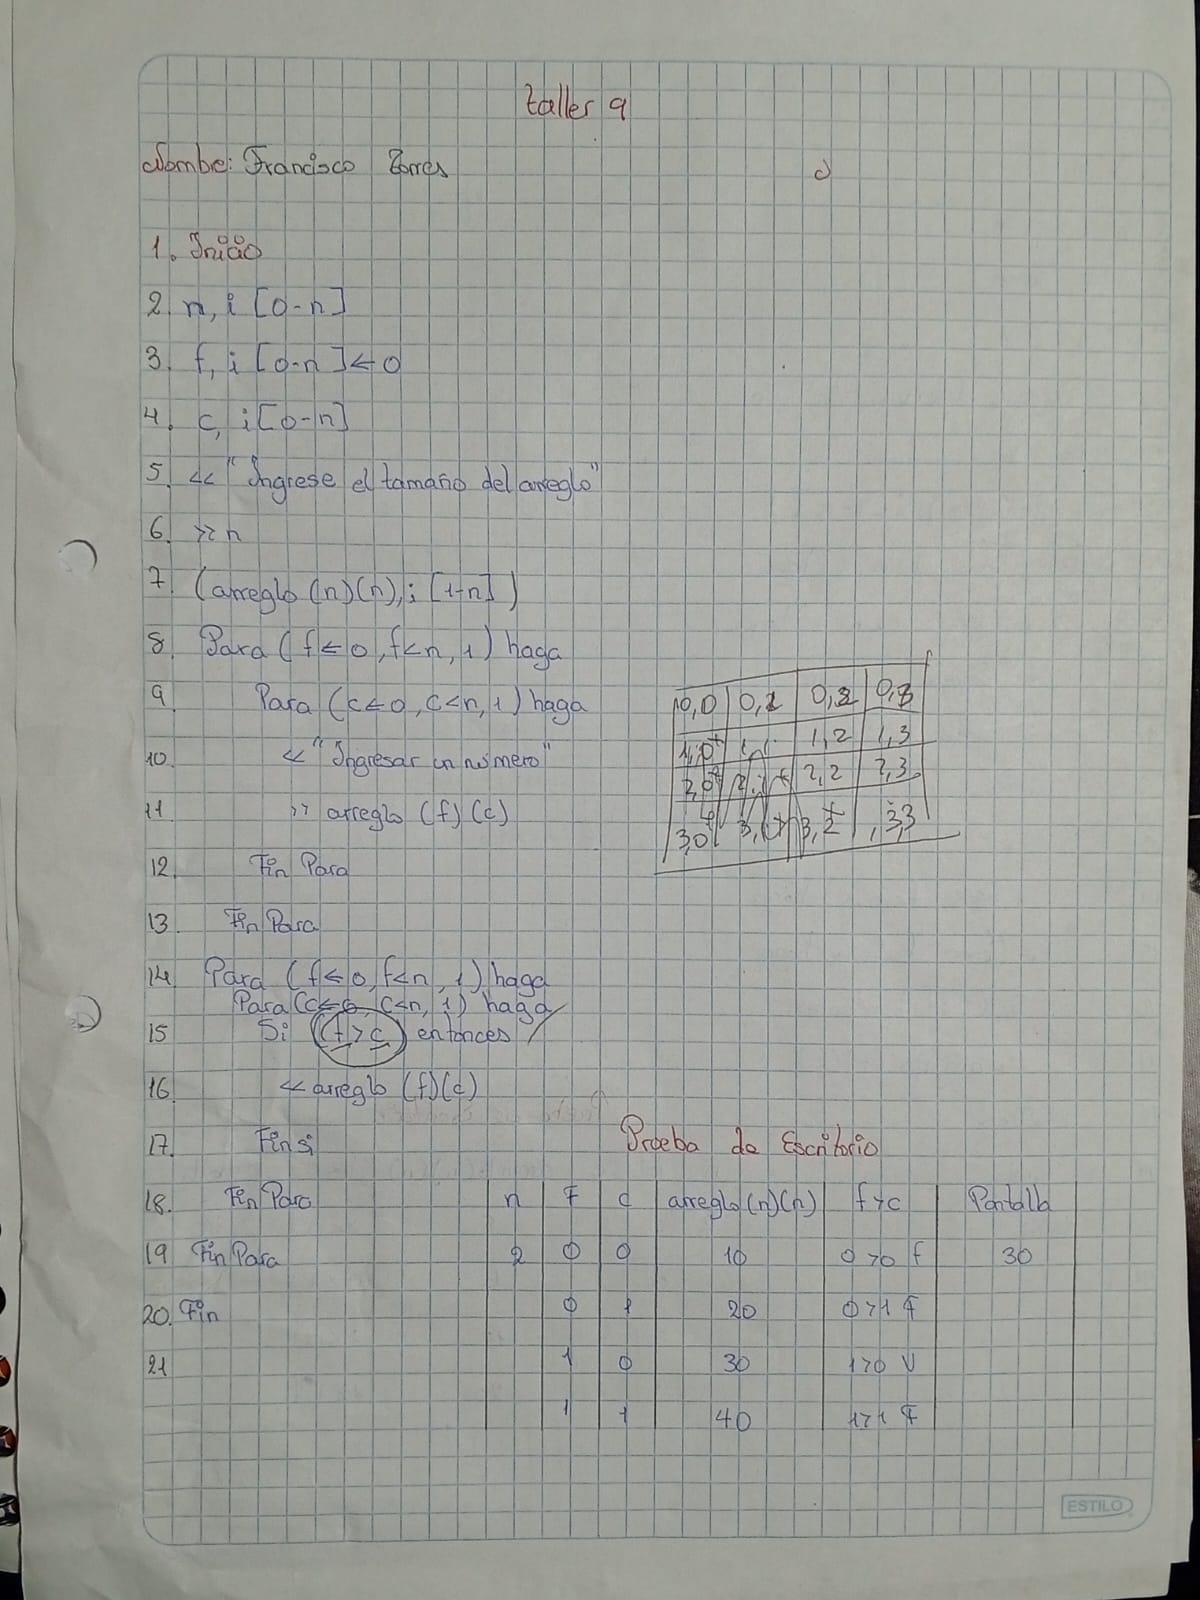 taller 9
Nombre: Francisco Torres
c)
1. Inicio
2. n, i [0-n]
3. f, i [0-n] ← 0
4. c, i [0-n]
5. << "Ingrese el tamaño del arreglo"
6. >> n
7. (arreglo (n)(n), i [1-n])
8. Para (f ← 0, f<n, 1) haga
9. Para (c ← 0, c<n, 1) haga
10. << "Ingresar un número"
11. >> arreglo (f) (c)
12. Fin Para
13. Fin Para
14. Para (f ← 0, f<n, 1) haga
Para (c ← 0, c<n, 1) haga
15. Si (f > c) entonces
16. << arreglo (f)(c)
17. Fin si
18. Fin Para
19. Fin Para
20. Fin
21
0,0 0,1 0,2 0,3
1,0 1,1 1,2 1,3
2,0 2,1 2,2 2,3
3,0 3,1 3,2 3,3
Prueba de Escritorio
n F c arreglo (n)(n) f>c Pantalla
2 0 0 10 0>0 f 30
0 1 20 0>1 F
1 0 30 1>0 V
1 1 40 1>1 F
ESTILO